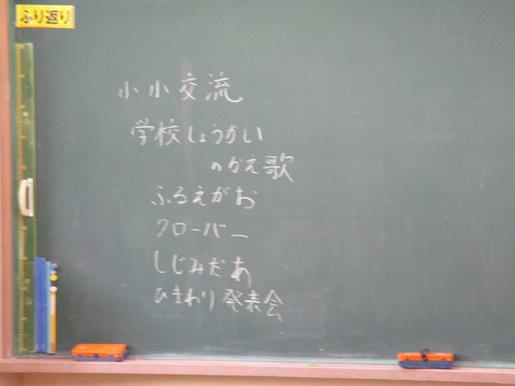 ふり返り
小小交流
学校しょうかい
のかえ歌
ふるえがお
クローバー
しじみだあ
ひまわり発表会